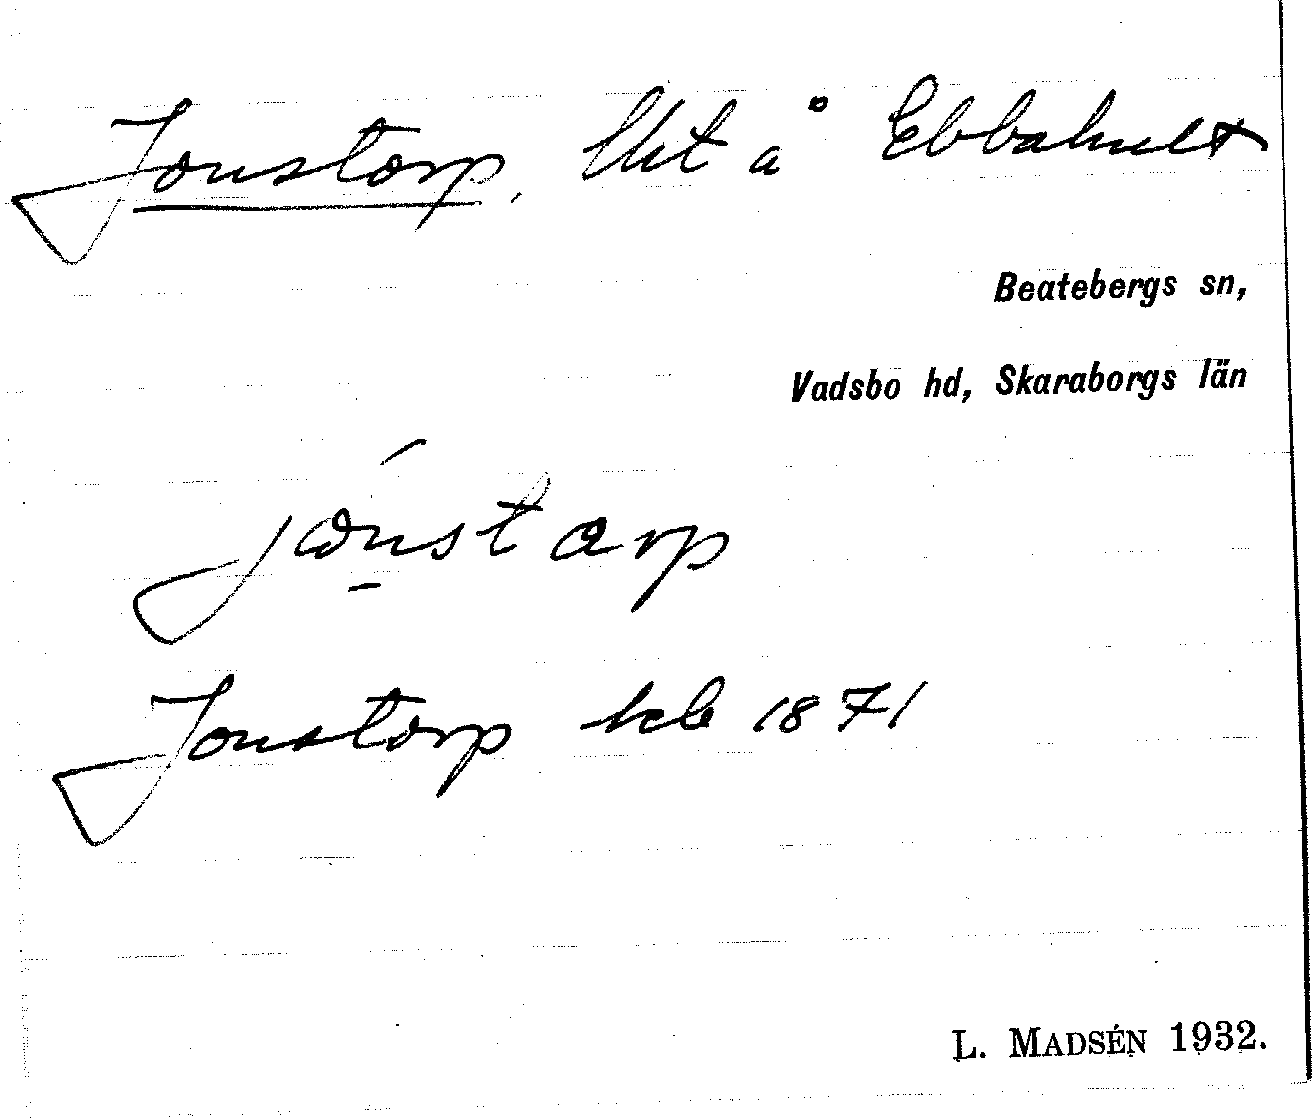 Jonstorp, lht å Ebbahult
Beatebergs sn,
Vadsbo hd, Skaraborgs län
jónstarp
Jonstorp kb 1871
L. MADSÉN 1932.